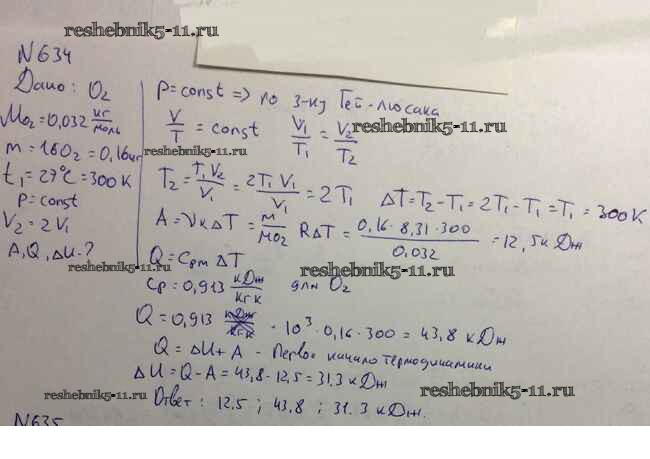 reshebnik5-11.ru
N634
Дано: O₂
Mo₂=0,032 кг/моль
m = 160₂ = 0,16 кг
t₁ = 27°C = 300 K
P = const
V₂ = 2V₁
A, Q, ΔU - ?
P = const => по з-ку Гей-люсака
V/T = const V₁/T₁ = V₂/T₂
reshebnik5-11.ru
reshebnik5-11.ru
T₂ = T₁V₂/V₁ = 2T₁V₁/V₁ = 2T₁ ΔT = T₂ - T₁ = 2T₁ - T₁ = T₁ = 300K
A = νRΔT = m/Mo₂ RΔT = 0,16 · 8,31 · 300/0,032 = 12,5 кДж
Q = Cpm ΔT
reshebnik5-11.ru
reshebnik5-11.ru
Cp = 0,913 кДж/кг К для O₂
Q = 0,913 · 10³ · 0,16 · 300 = 43,8 кДж
Q = ΔU + A - Первое начало термодинамики
ΔU = Q - A = 43,8 - 12,5 = 31,3 кДж
reshebnik5-11.ru
reshebnik5-11.ru
Ответ: 12,5 ; 43,8 ; 31.3 кДж.
N635